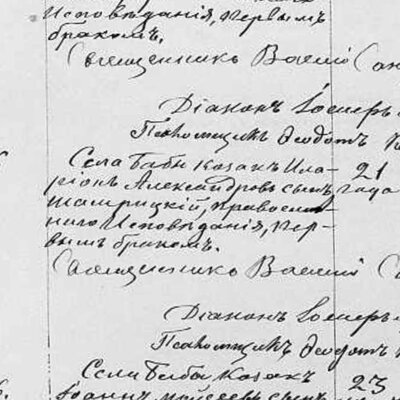 Исповѣданія, первымъ
бракомъ.
Священникъ Василій
Діаконъ
Псаломщикъ Ѳеодотъ
Села Бабы Козакъ Ила- 21
ріонъ Александровъ сынъ, года
православ-
наго Исповѣданія, пер-
вымъ бракомъ.
Священникъ Василій
Діаконъ
Псаломщикъ Ѳеодотъ
Села Бабы Козакъ 23
Іоаннъ сынъ